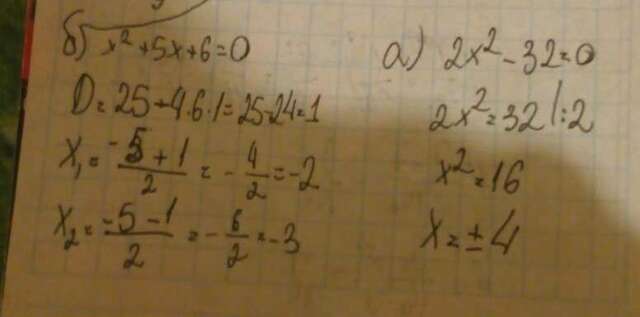 б) x² + 5x + 6 = 0
D = 25 + 4·6·1 = 25-24 = 1
x₁ = (-5 + 1)/2 = -4/2 = -2
x₂ = (-5 - 1)/2 = -6/2 = -3
а) 2x² - 32 = 0
2x² = 32 |:2
x² = 16
x = ± 4